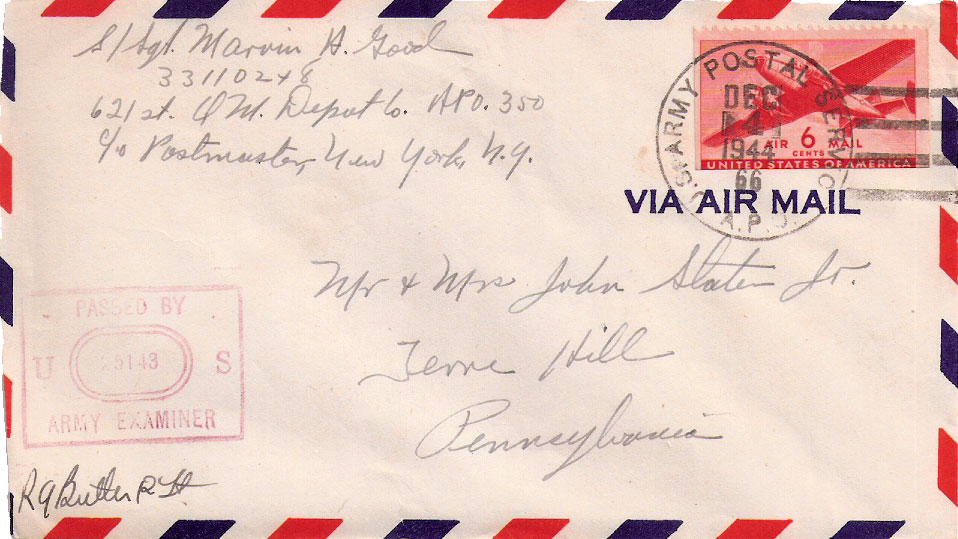 S/Sgt. Marvin H. Good
33110248
621st. Q M. Depot Co. APO. 350
c/o Postmaster, New York, N.Y.
U.S. ARMY POSTAL SERVICE
DEC
1944
66
A.P.O.
AIR 6 MAIL
CENTS
UNITED STATES OF AMERICA
VIA AIR MAIL
Mr & Mrs John Staten Jr.
Terre Hill
Pennsylvania
PASSED BY
U S
5143
ARMY EXAMINER
R G Butler